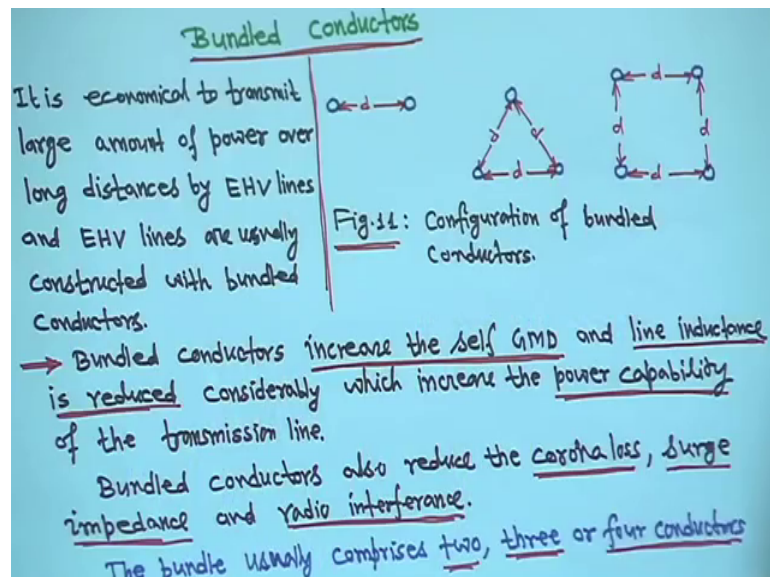 Bundled Conductors
It is economical to transmit
large amount of power over
long distances by EHV lines
and EHV lines are usually
constructed with bundled
conductors.
d
d
d
d
d
d
d
d
Fig.11: Configuration of bundled
conductors.
→ Bundled conductors increase the self GMD and line inductance
is reduced considerably which increase the power capability
of the transmission line.
Bundled conductors also reduce the corona loss, surge
impedance and radio interferance.
The bundle usually comprises two, three or four conductors